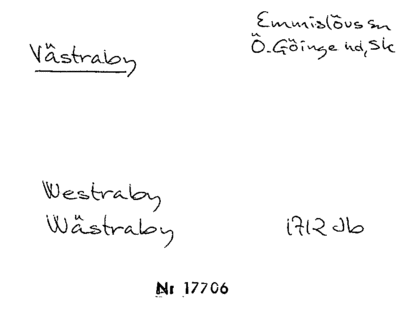 Emmislövs sn
Västraby
Ö. Göinge hd, Sk
Westraby
Wästraby 1712 Jb
Nr 17706